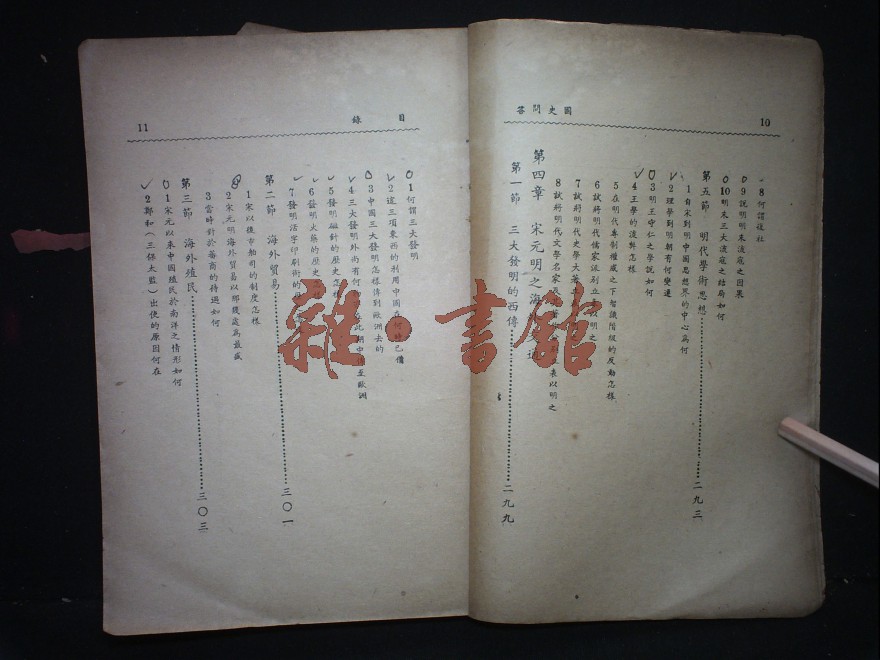 國史問答
10
8 何謂復社
9 說明明末流寇之因果
10 明末三大流寇之結局如何
第五節 明代學術思想 二九三
1 自宋到明中國思想界的中心為何
2 理學到明朝有何變遷
3 明王守仁之學說如何
4 王學的流弊怎樣
5 在明代專制權威之下智識階級的反動怎樣
6 試將明代儒家派別立
明之
7 試將明代史學大著
8 試將明代文學名家
表以明之
第四章 宋元明之海
第一節 三大發明的西傳 二九九
目錄
11
1 何謂三大發明
2 這三項東西的利用中國在何時已備
3 中國三大發明怎樣傳到歐洲去的
4 三大發明外尚有何
此期中傳至歐洲
5 發明磁針的歷史怎樣
6 發明火藥的歷史怎
7 發明活字印刷術的
第二節 海外貿易 三〇一
1 宋以後市舶司的制度怎樣
2 宋元明海外貿易以那幾處為最盛
3 當時對於蕃商的待遇如何
第三節 海外殖民 三〇三
1 宋元以來中國殖民於南洋之情形如何
2 鄭和(三保太監)出使的原因何在
雜·書館